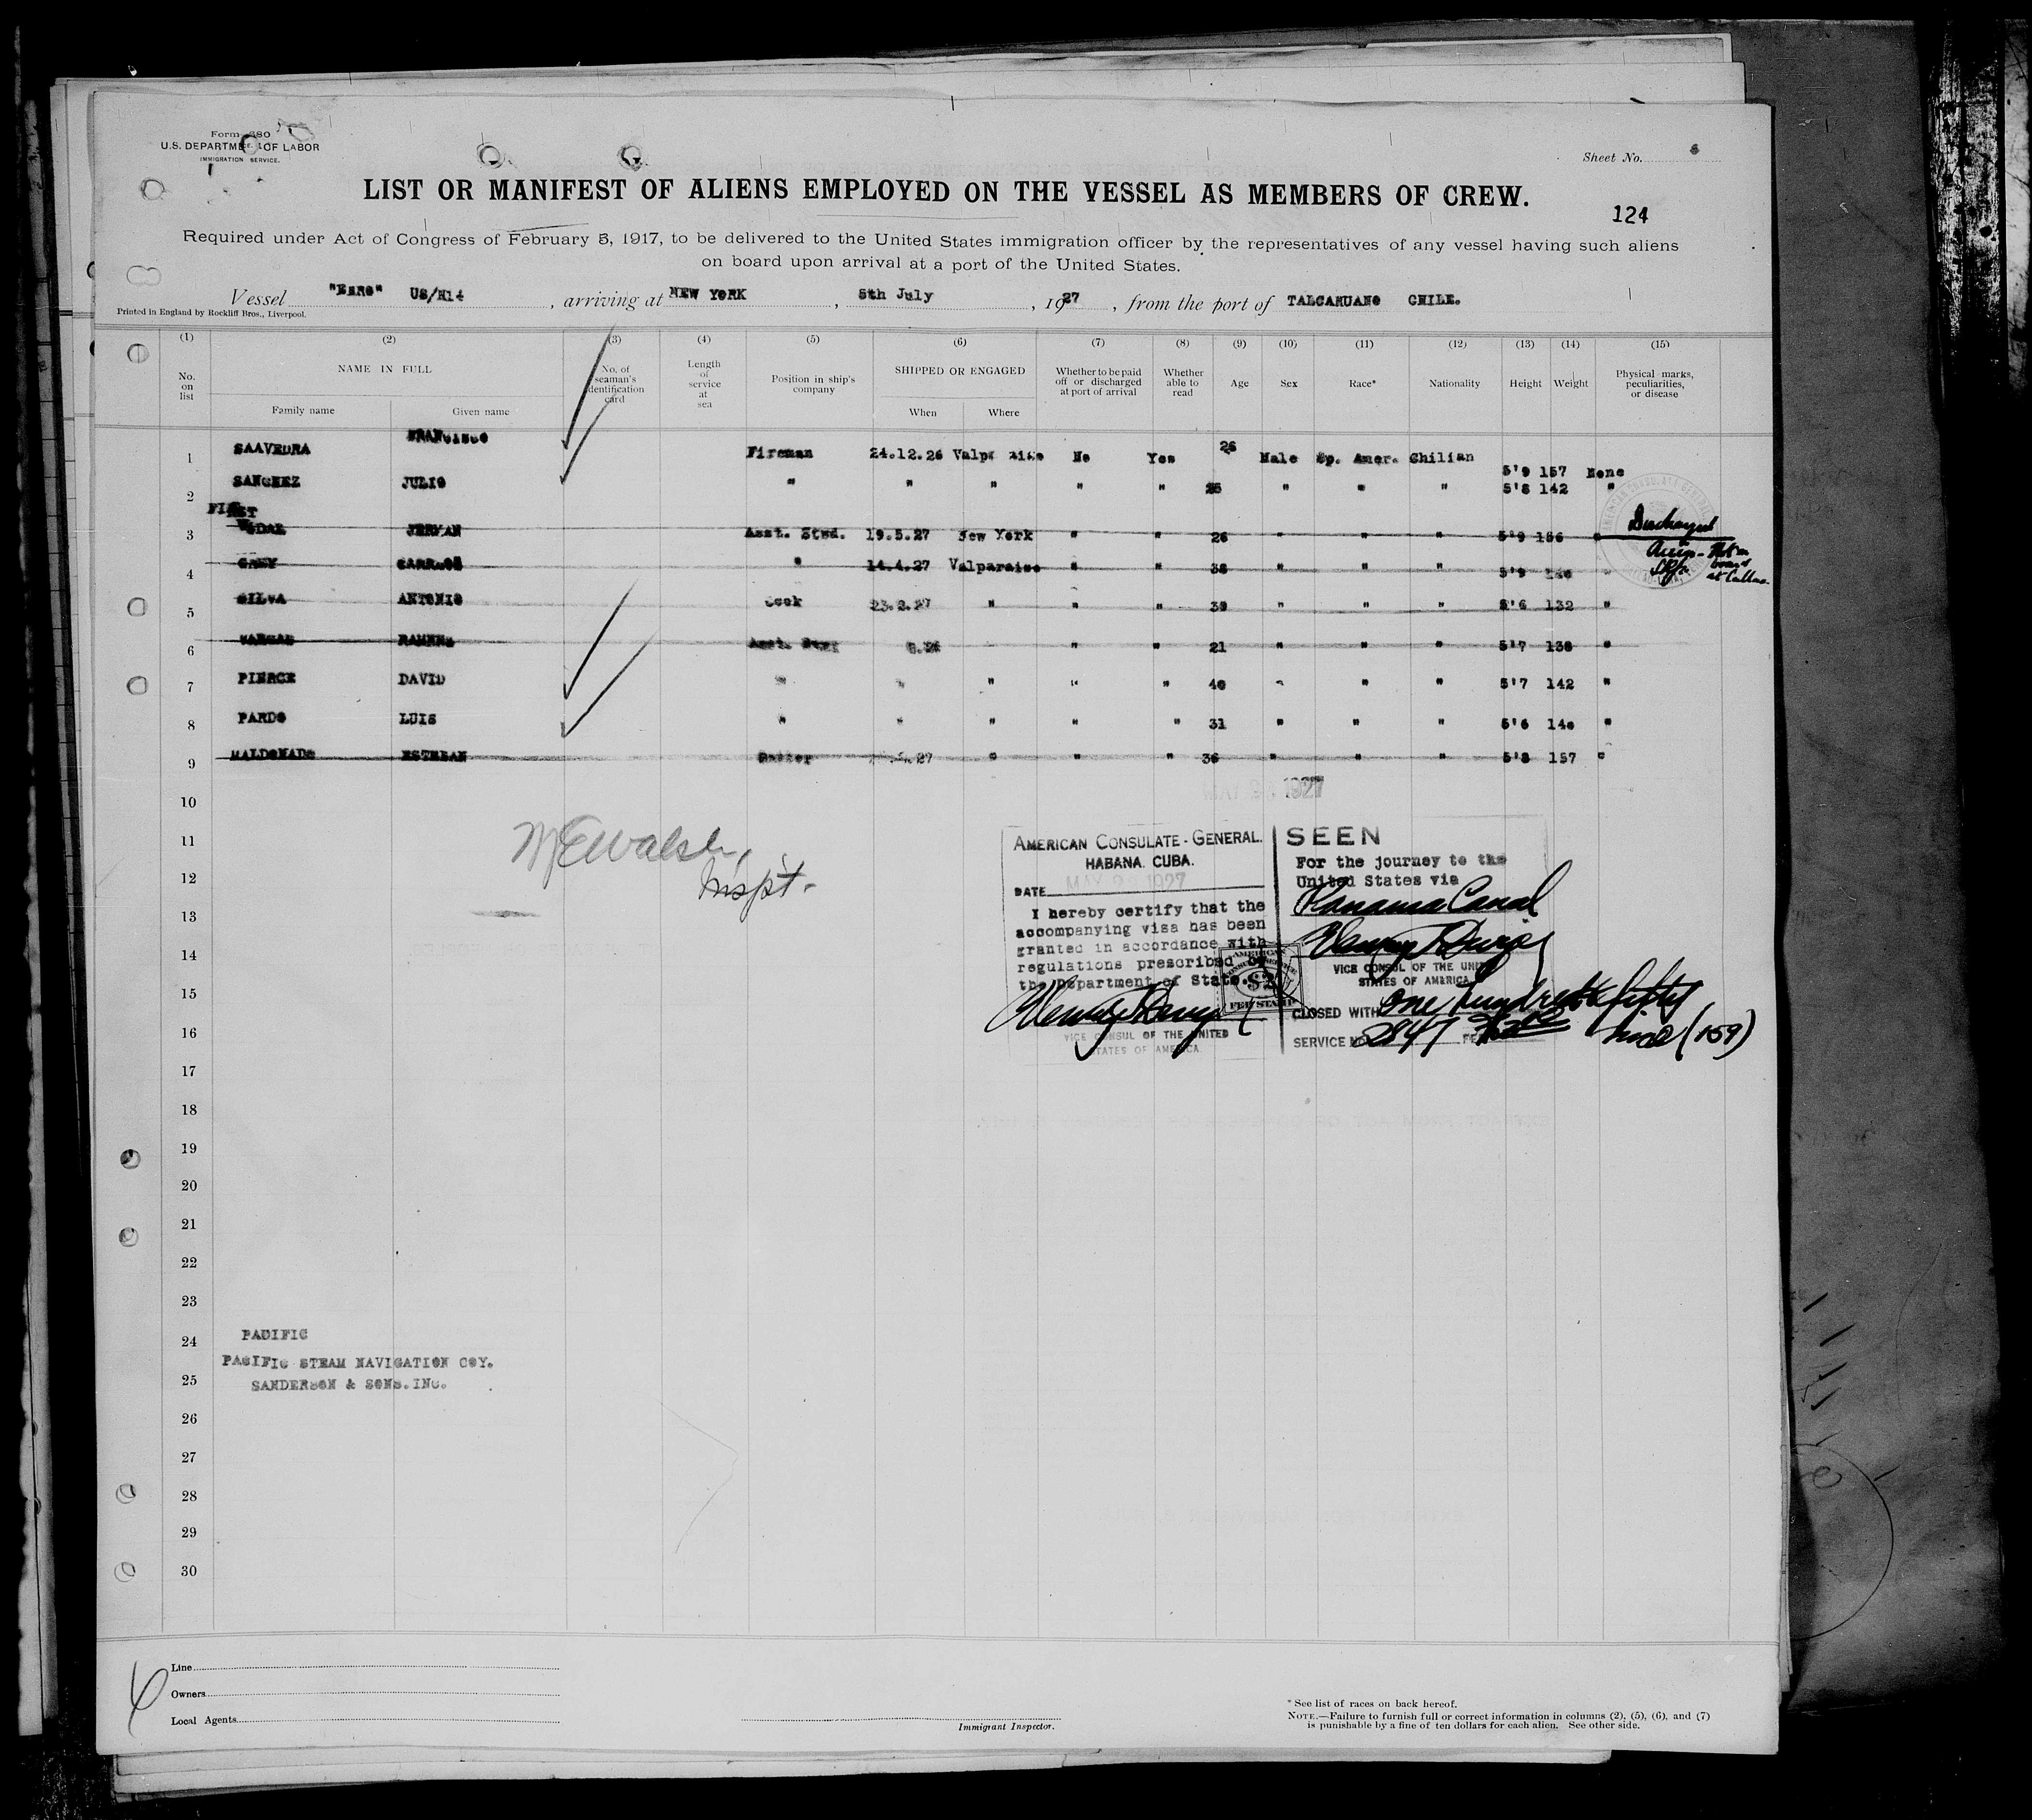 Form 680
U.S. DEPARTMENT OF LABOR
IMMIGRATION SERVICE.
Sheet No. 6
LIST OR MANIFEST OF ALIENS EMPLOYED ON THE VESSEL AS MEMBERS OF CREW.
124
Required under Act of Congress of February 5, 1917, to be delivered to the United States immigration officer by the representatives of any vessel having such aliens
on board upon arrival at a port of the United States.
Vessel "EBRO" US/H14, arriving at NEW YORK, 5th July, 1927, from the port of TALCAHUANO CHILE.
Printed in England by Rockliff Bros., Liverpool.
(1) (2) (3) (4) (5) (6) (7) (8) (9) (10) (11) (12) (13) (14) (15)
No. on list
NAME IN FULL
Family name Given name
No. of seaman's identification card
Length of service at sea
Position in ship's company
SHIPPED OR ENGAGED
When Where
Whether to be paid off or discharged at port of arrival
Whether able to read
Age
Sex
Race*
Nationality
Height
Weight
Physical marks, peculiarities, or disease
1 SAAVEDRA FRANCISCO Fireman 24.12.26 No Yes 26 Male Sp. Amer. Chilian 5'9 157 None
2 SANCHEZ JULIO " " " " " " " " 5'8 142 "
3 JERMAN Asst. Stwd. 19.5.27 New York " " 26 " " " 5'9 156 " Discharged
4 14.4.27 Valparaiso " " 38 " " " 5'9 "
Not on board at Callao
5 SILVA ANTONIO Cook 23.2.27 " " " 39 " " " 5'6 132 "
6 VARGAS Asst. Stwd " " 21 " " " 5'7 138 "
7 PIERCE DAVID " " " " " 40 " " " 5'7 142 "
8 PARDO LUIS " " " " " 31 " " " 5'6 140 "
9 MALDONADO ESTEBAN " " " 36 " " " 5'8 157 "
10
11
12
13
14
15
16
17
18
19
20
21
22
23
24
25
26
27
28
29
30
1927
M E Walsh,
Inspt.
AMERICAN CONSULATE-GENERAL.
HABANA. CUBA.
DATE MAY 1927
I hereby certify that the
accompanying visa has been
granted in accordance with
regulations prescribed by
the Department of State.
VICE CONSUL OF THE UNITED
STATES OF AMERICA.
AMERICAN
CONSULAR SERVICE
$2
FEE STAMP
SEEN
For the journey to the
United States via
Panama Canal
VICE CONSUL OF THE UNITED
STATES OF AMERICA
CLOSED WITH One hundred & fifty
nine (159)
SERVICE No. 2847
PACIFIC
PACIFIC STEAM NAVIGATION COY.
SANDERSON & SONS. INC.
Line
Owners
Local Agents
Immigrant Inspector.
* See list of races on back hereof.
NOTE.—Failure to furnish full or correct information in columns (2), (5), (6), and (7)
is punishable by a fine of ten dollars for each alien. See other side.